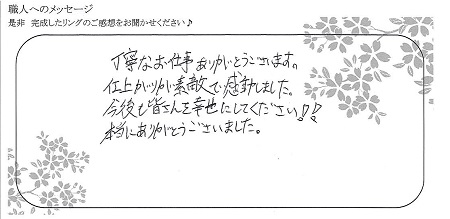 職人へのメッセージ
是非 完成したリングのご感想をお聞かせください♪
丁寧なお仕事ありがとうございます。
仕上がりが素敵で感動しました。
今後も皆さんを幸せにしてください!!
本当にありがとうございました。